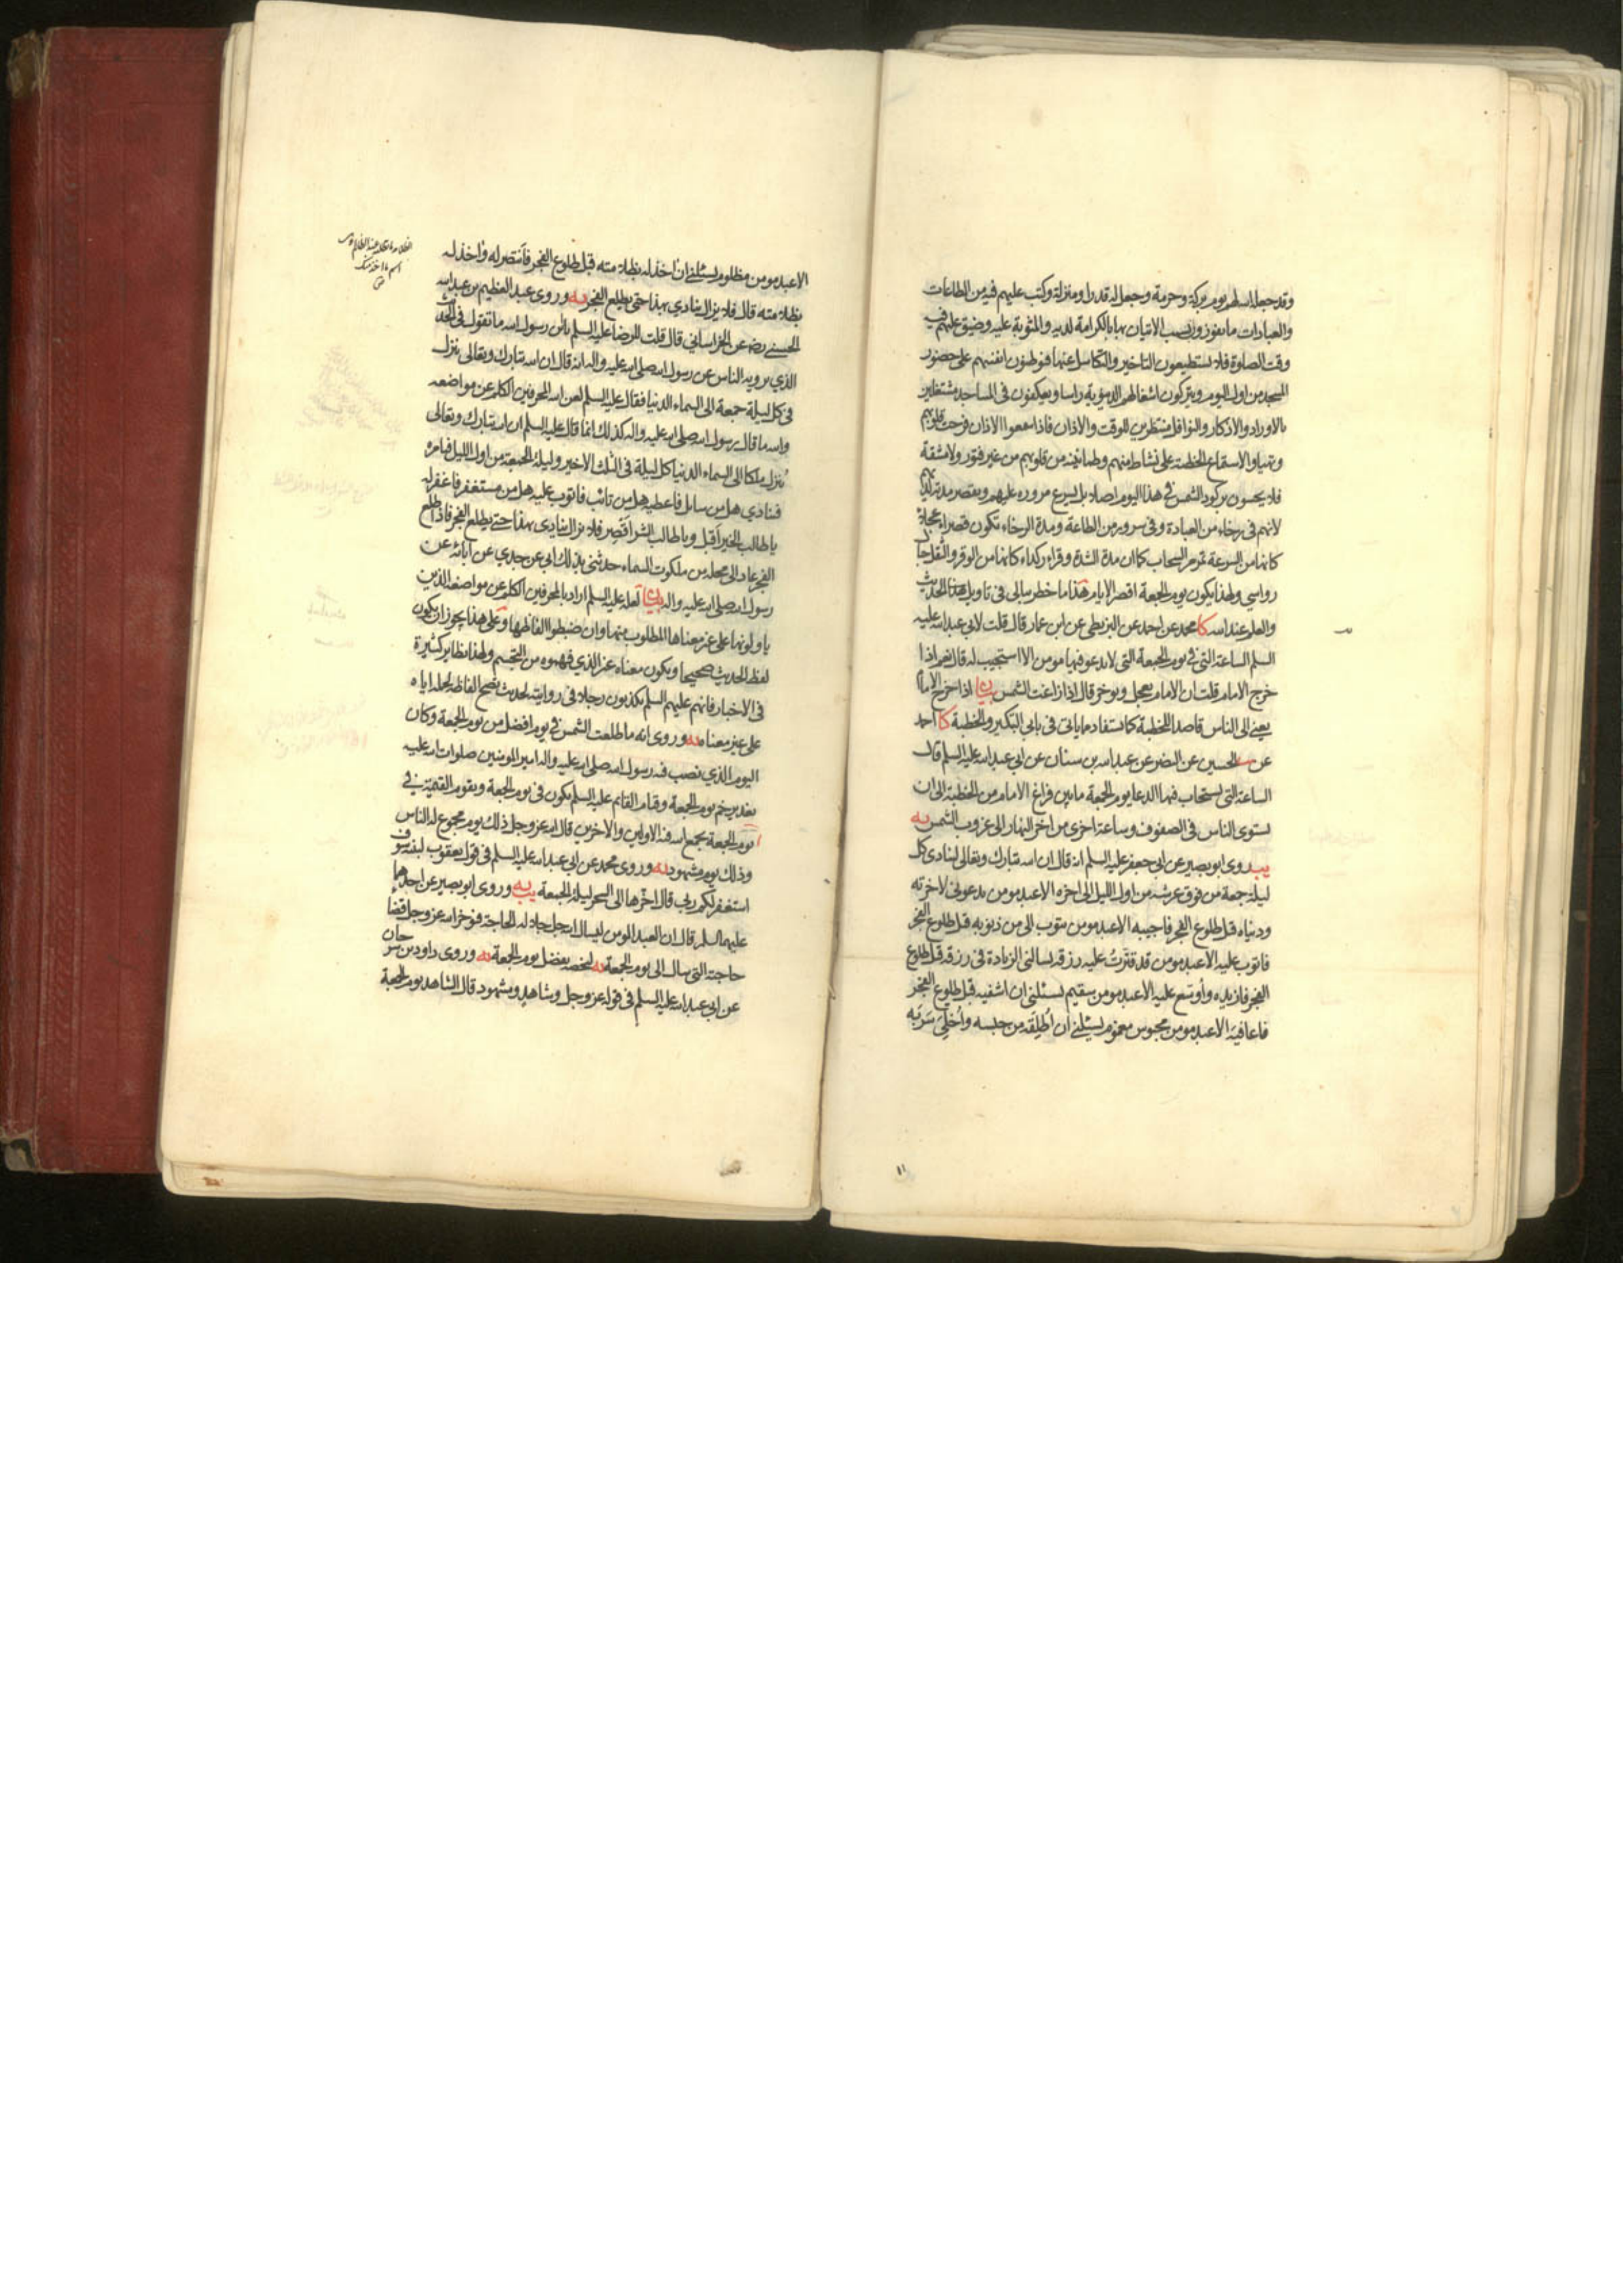 وقد جعله الله لهم يوم بركة وحرمة وجعل له قدرا ومنزلة وكتب عليهم فيه من الطاعات
والعبادات ما يفوزون بسبب الاتيان بها بالكرامة لديه والمثوبة عليه وضيق عليهم فيه
وقت الصلوة فلا يستطيعون التاخير والتكاسل عنها فيوطنون انفسهم على حضور
المسجد من اول اليوم ويتركون اشغالهم الدنيوية راسا ويعكفون في المساجد مشتغلين
بالاوراد والاذكار والنوافل منتظرين للوقت والاذان فاذا سمعوا الاذان فرحت قلوبهم
وتهياوا لاستماع الخطبة على نشاط منهم وطمانينة من قلوبهم من غير فتور ولا مشقة
فلا يحسون بركود الشمس في هذا اليوم اصلا بل يسرع مروره عليهم ويقصر مدته لديهم
لانهم في رخاء من العبادة وفي سرور من الطاعة ومدة الرخاء تكون قصراء عجلاء
كانها من السرعة تمر مر السحاب كما ان مدة الشدة وقراء ركداء كانها من الوقر والثقل جبال
رواسي ولهذا يكون يوم الجمعة اقصر الايام هذا ما خطر ببالي في تاويل هذا الحديث
والعلم عند الله كا محمد عن احمد عن البزنطي عن ابن عمار قال قلت لابي عبد الله عليه
السلم الساعة التي في يوم الجمعة التي لا يدعو فيها مومن الا استجيب له قال نعم اذا
خرج الامام قلت ان الامام يعجل ويوخر قال اذا زاغت الشمس بيان اذا خرج الامام
يعني الى الناس قاصدا للخطبة كما يستفاد مما ياتي في بابي التبكير والخطبة كا احمد
عن الحسين عن النضر عن عبد الله بن سنان عن ابي عبد الله عليه السلم قال
الساعة التي يستجاب فيها الدعا يوم الجمعة ما بين فراغ الامام من الخطبة الى ان
يستوي الناس في الصفوف وساعة اخرى من اخر النهار الى غروب الشمس يه
يب روى ابو بصير عن ابي جعفر عليه السلم انه قال ان الله تبارك وتعالى لينادي كل
ليلة جمعة من فوق عرشه من اول الليل الى اخره الا عبد مومن يدعوني لاخرته
ودنياه قبل طلوع الفجر فاجيبه الا عبد مومن يتوب الي من ذنوبه قبل طلوع الفجر
فاتوب عليه الا عبد مومن قد قترت عليه رزقه يسالني الزيادة في رزقه قبل طلوع
الفجر فازيده واوسع عليه الا عبد مومن سقيم يسئلني ان اشفيه قبل طلوع الفجر
فاعافيه الا عبد مومن محبوس مغموم يسئلني ان اطلقه من حبسه واخلي سربه
١١
الا عبد مومن مظلوم يسئلني ان اخذ له بظلامته قبل طلوع الفجر فانتصر له واخذ له
بظلامته قال فلا يزال ينادي بهذا حتى يطلع الفجر يه وروى عبد العظيم بن عبد الله
الحسني رضه عن الخراساني قال قلت للرضا عليه السلم يابن رسول الله ما تقول في الحديث
الذي يرويه الناس عن رسول الله صلى الله عليه واله انه قال ان الله تبارك وتعالى ينزل
في كل ليلة جمعة الى السماء الدنيا فقال عليه السلم لعن الله المحرفين الكلم عن مواضعه
والله ما قال رسول الله صلى الله عليه واله كذلك انما قال عليه السلم ان الله تبارك وتعالى
ينزل ملكا الى السماء الدنيا كل ليلة في الثلث الاخير وليلة الجمعة من اول الليل فيامره
فينادي هل من سايل فاعطيه هل من تائب فاتوب عليه هل من مستغفر فاغفر له
يا طالب الخير اقبل ويا طالب الشر اقصر فلا يزال ينادي بهذا حتى يطلع الفجر فاذا طلع
الفجر عاد الى محله من ملكوت السماء حدثني بذلك ابي عن جدي عن ابائه عن
رسول الله صلى الله عليه واله بيان لعله عليه السلم اراد بالمحرفين الكلم عن مواضعه الذين
ياولونها على غير معناها المطلوب منها وان ضبطوا الفاظها وعلى هذا يجوز ان يكون
لفظ الحديث صحيحا ويكون معناه غير الذي فهموه من التجسم ولهذا نظاير كثيرة
في الاخبار فانهم عليهم السلم يكذبون رجلا في روايته لحديث يصح الفاظه لحمله اياه
على غير معناه يه وروى انه ما طلعت الشمس في يوم افضل من يوم الجمعة وكان
اليوم الذي نصب فيه رسول الله صلى الله عليه واله امير المومنين صلوات الله عليه
بغدير خم يوم الجمعة وقيام القايم عليه السلم يكون في يوم الجمعة ويقوم القيمة في
يوم الجمعة يجمع الله فيه الاولين والاخرين قال الله عز وجل ذلك يوم مجموع له الناس
وذلك يوم مشهود يه وروى محمد عن ابي عبد الله عليه السلم في قول يعقوب لبنيه سوف
استغفر لكم ربي قال اخرها الى السحر ليلة الجمعة يب يه وروى ابو بصير عن احدهما
عليهما السلم قال ان العبد المومن ليسال الله جل جلاله الحاجة فيوخر الله عز وجل قضاء
حاجته التي سال الى يوم الجمعة يه ليخصه بفضل يوم الجمعة يه وروى داود بن سرحان
عن ابي عبد الله عليه السلم في قوله عز وجل وشاهد ومشهود قال الشاهد يوم الجمعة